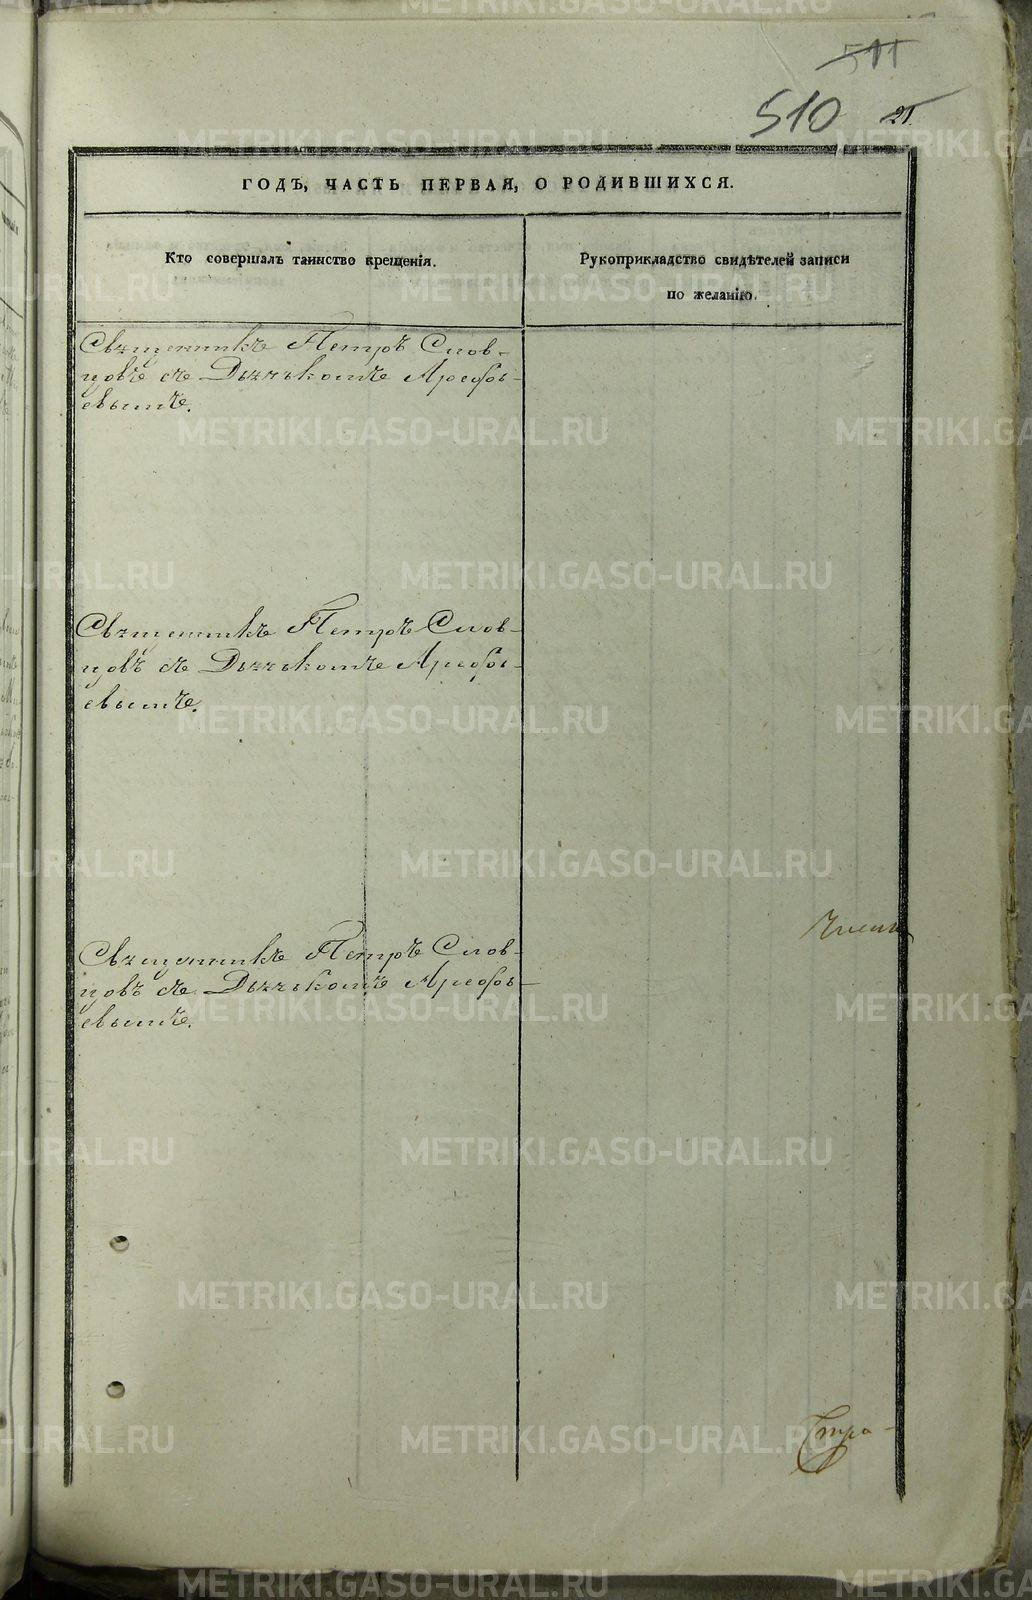 511
510 21.
ГОДЪ, ЧАСТЬ ПЕРВАЯ, О РОДИВШИХСЯ.
Кто совершалъ таинство крещенія.
Рукоприкладство свидѣтелей записи
по желанію.
Священникъ Петръ Слов-
цовъ съ Дьячькомъ Арефь-
евымъ.
Священникъ Петръ Слов-
цовъ съ Дьячькомъ Арефь-
евымъ.
Священникъ Петръ Слов-
цовъ съ Дьячькомъ Арефь-
евымъ.
METRIKI.GASO-URAL.RU